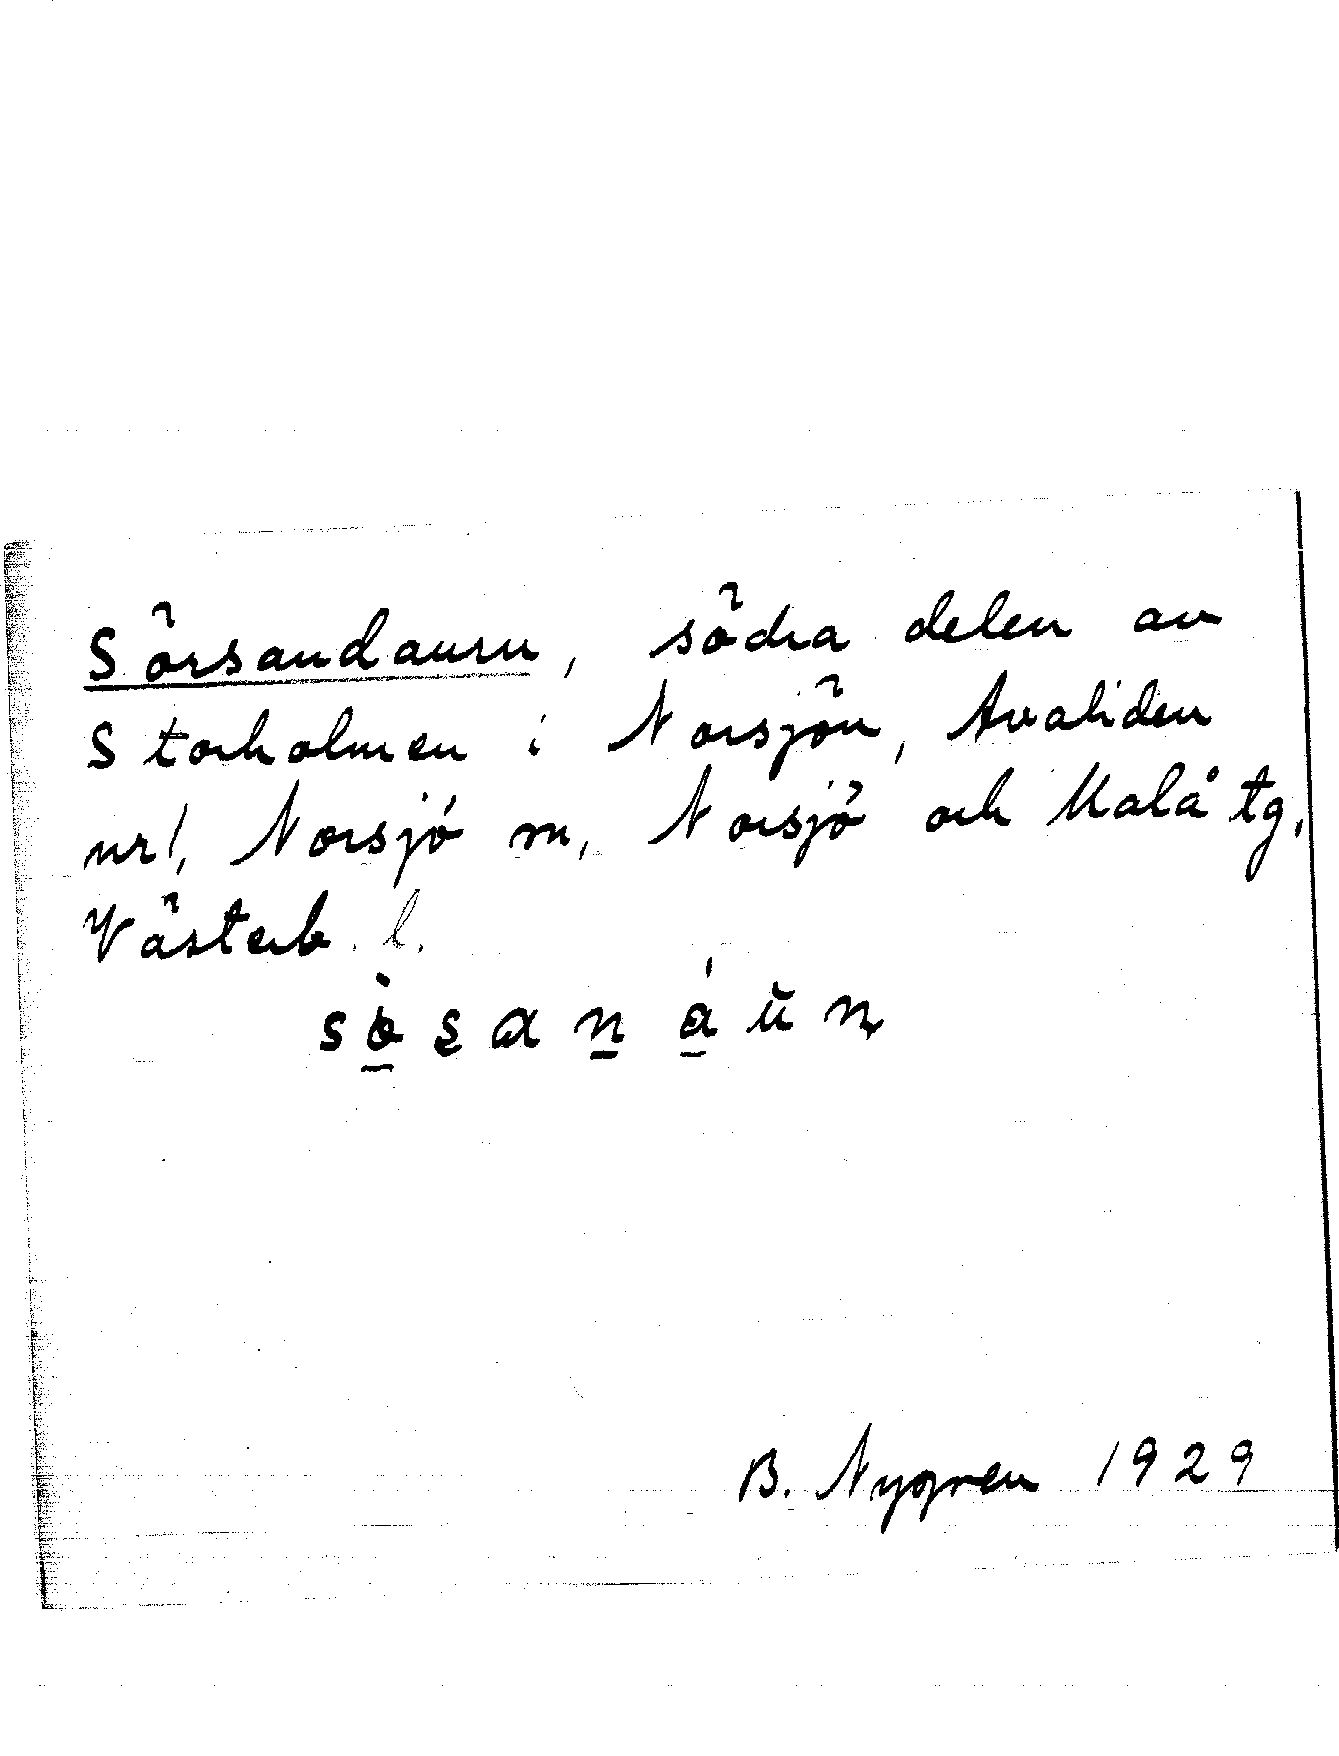 Sörsandaurn, södra delen av
Storholmen i Norsjön, Avaliden
nr 1, Norsjö sn, Norsjö och Malå tg,
Västerb. l.
B. Nygren 1929